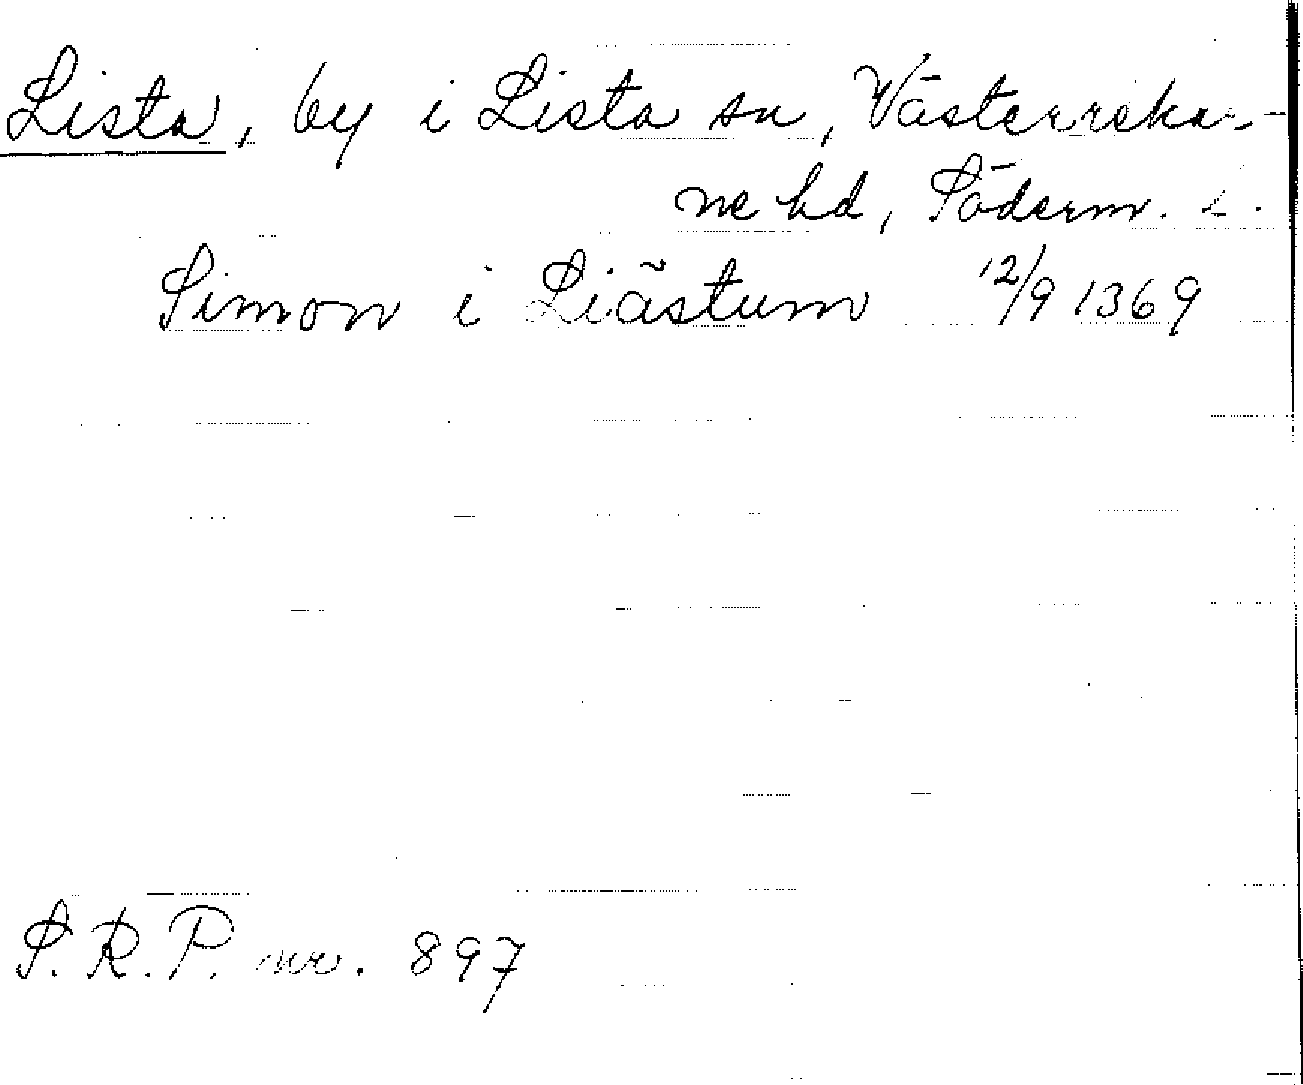 Lista, by i Lista sn, Västerreka-
ne hd, Söderm. l.
Simon i Liãstum 12/9 1369
S.R.P. nr. 897